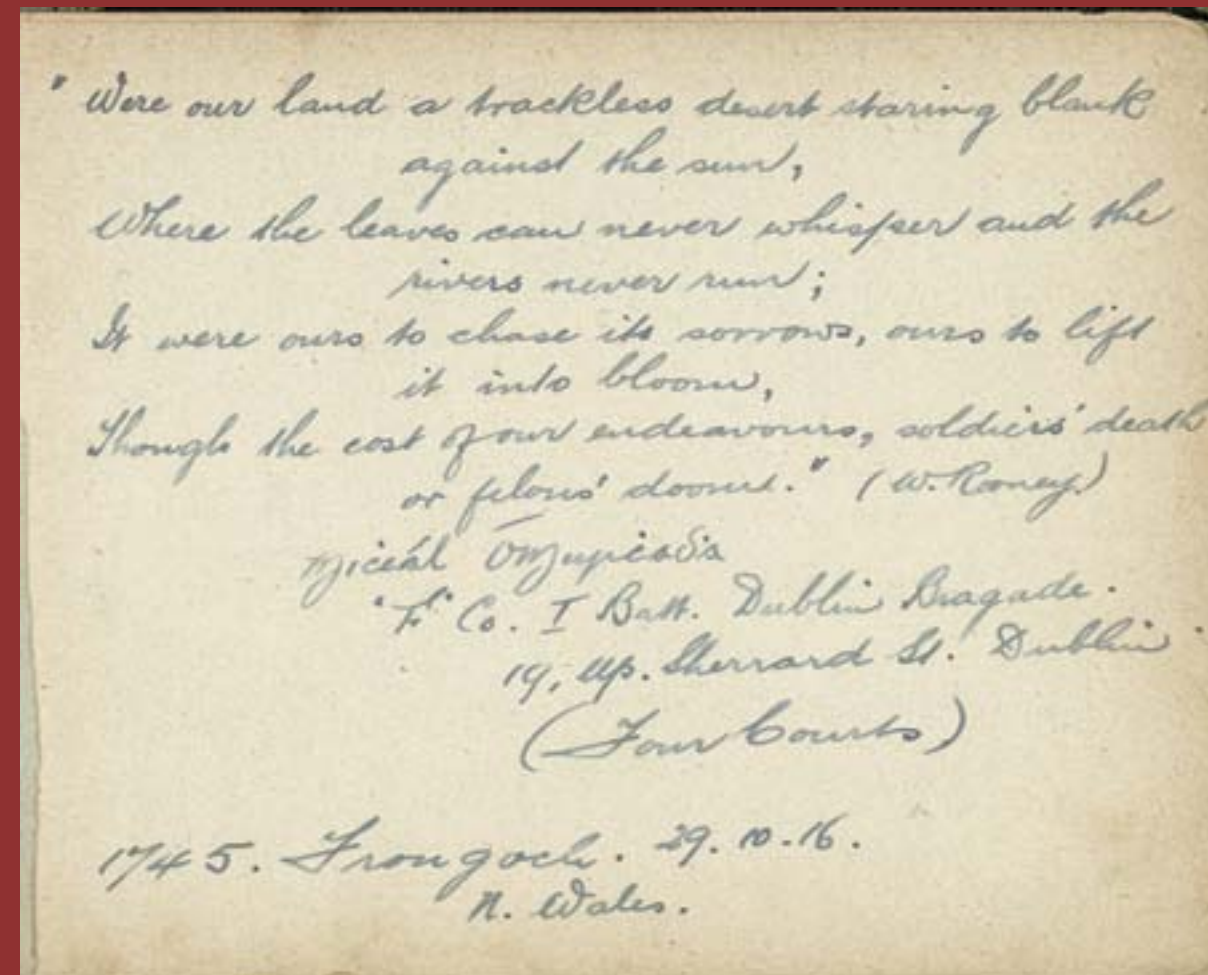 " Were our land a trackless desert staring blank
against the sun,
Where the leaves can never whisper and the
rivers never run;
It were ours to chase its sorrows, ours to lift
it into bloom,
Though the cost of our endeavours, soldiers' death
or felons' doom." (W. Rooney.)
Miceál
"F" Co. I Batt. Dublin Bragade.
19, Up. Sherrard St. Dublin.
(Four Courts)
1745. Frongoch. 29.10.16.
N. Wales.